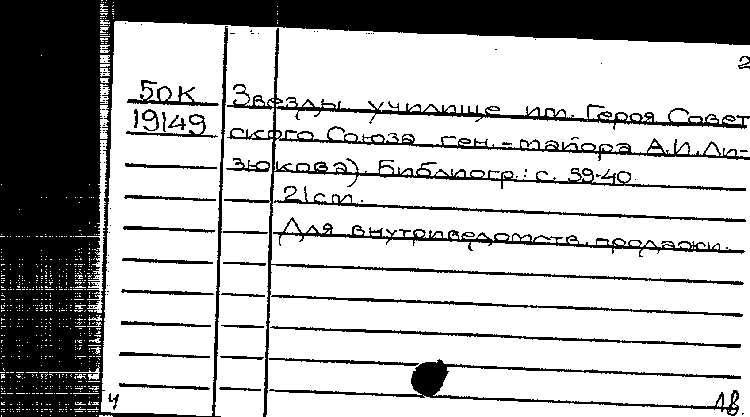 2
50К Звезды училище им. Героя Совет
19149 ского Союза ген.-майора А.И.Ли-
зюкова). Библиогр.: с. 39-40.
21 см.
Для внутриведомств. продажи.
4